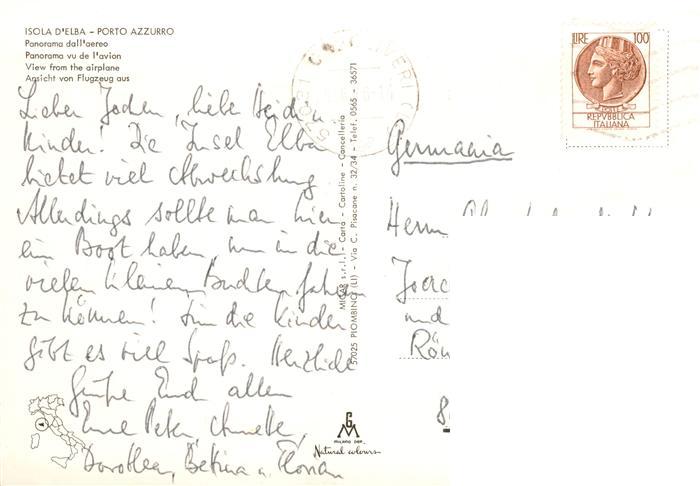 ISOLA D'ELBA - PORTO AZZURRO
Panorama dall'aereo
Panorama vu de l'avion
View from the airplane
Ansicht von Flugzeug aus
Lieber Jochen, liebe
Kinder! Die Insel Elba
bietet viel Abwechslung.
Allerdings sollte man hier
ein Boot haben, um in die
vielen kleinen Buchten fahren
zu können! Für die Kinder
gibt es viel Spaß. Herzliche
Grüße Euch allen
Eure Peter, Annette,
Dorothea, Bettina u. Florian
57025 PIOMBINO (LI) - Via C. Pisacane n. 32/34 - Telef. 0565 - 36571
MIGAR s.r.l. - Carta - Cartoline - Cancelleria
MILANO DEP.
Natural colours
LIRE 100
POSTE
REPVBBLICA
ITALIANA
Germania
Herrn
und